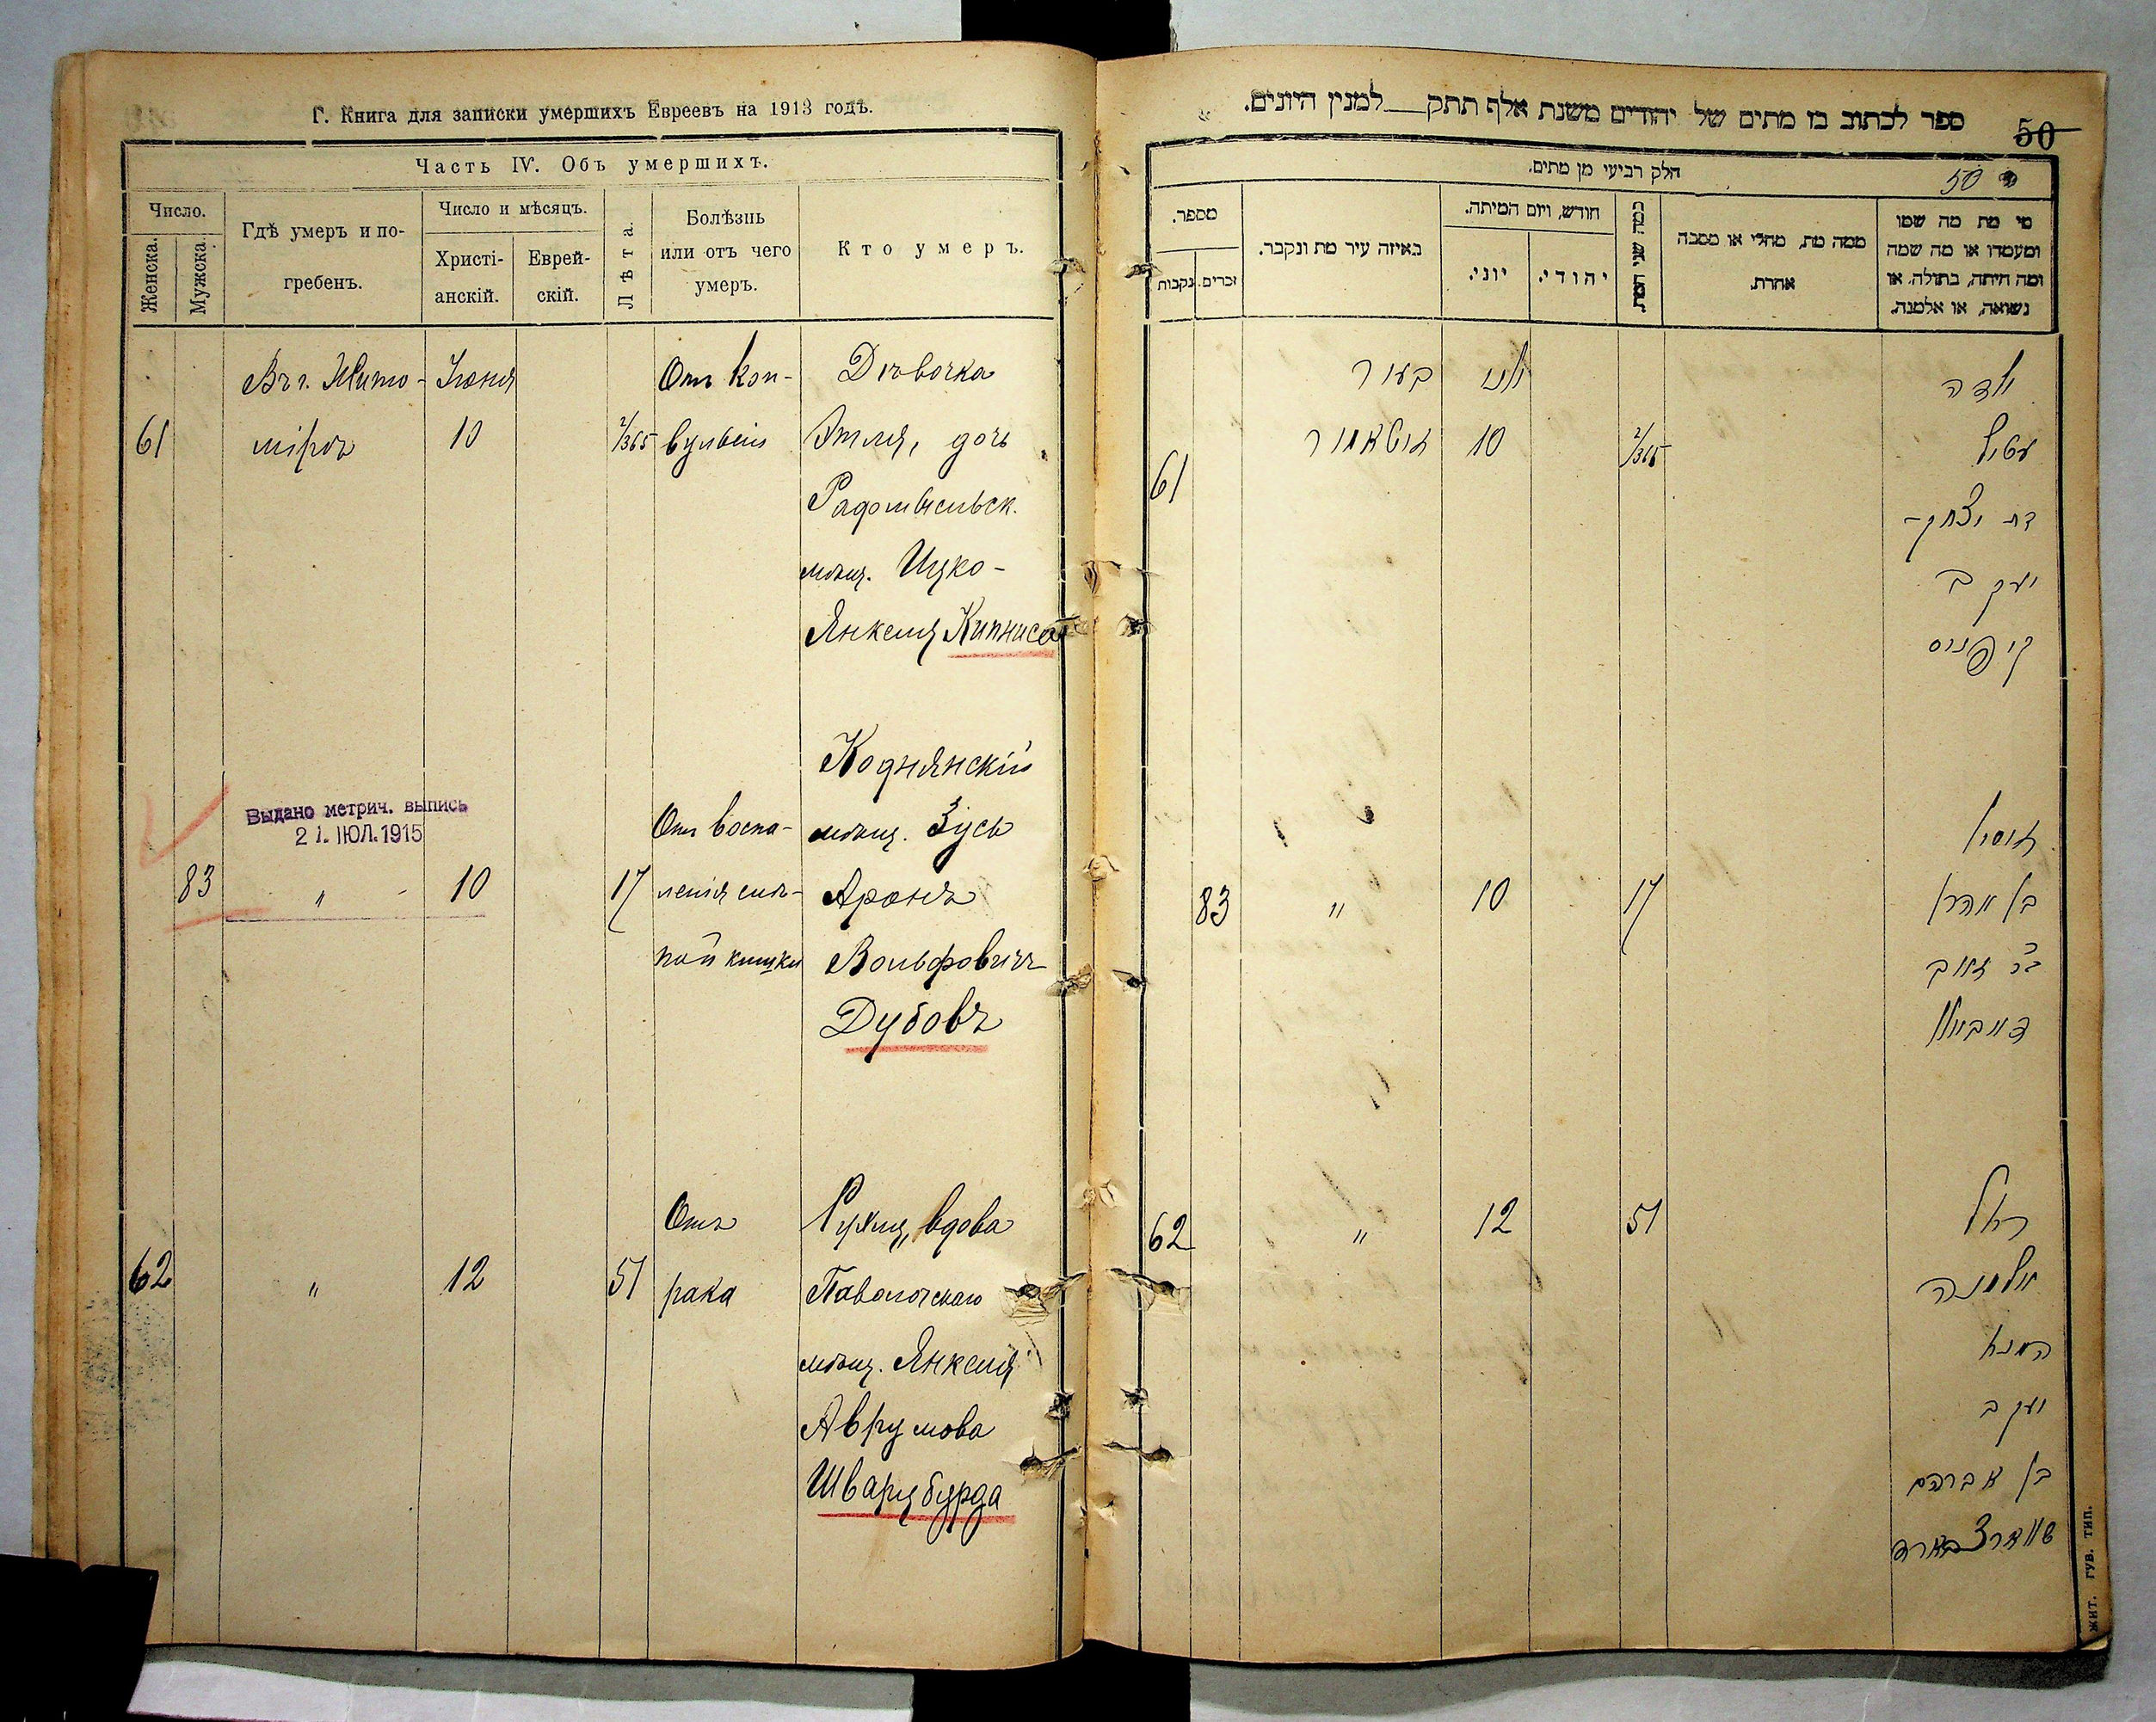 Г. Книга для записки умершихъ Евреевъ на 1913 годъ.
Часть IV. Объ умершихъ.
Число.
Женска.
Мужска.
Гдѣ умеръ и по-
гребенъ.
Число и мѣсяцъ.
Христі-
анскій.
Еврей-
скій.
Лѣта.
Болѣзнь
или отъ чего
умеръ.
Кто умеръ.
61
Въ г. Жито-
мірѣ
Іюня
10
2/365
Отъ кон-
вульсій
Дѣвочка
Этля, дочь
Радомысльск.
мѣщ. Ицко-
Янкеля Кипниса
Выдано метрич. выпись
21. ІЮЛ. 1915
83
"
10
17
Отъ воспа-
ленія слѣ-
пой кишки
Коднянскій
мѣщ. Зусь
Аронъ
Вольфовичъ
Дубовъ
62
"
12
51
Отъ
рака
Рухля, вдова
Паволочскаго
мѣщ. Янкеля
Аврумова
Шварцбурда
ספר לכתוב בו מתים של יהודים משנת אלף תתק למנין היונים.
50
חלק רביעי מן מתים.
50
מספר.
נקבות
זכרים.
באיזה עיר מת ונקבר.
חודש, ויום המיתה.
יוני.
יהודי.
כמה שני המת.
ממה מת, מחלי או מסבה
אחרת.
מי מת מה שמו
ומעמדו או מה שמה
ומה היתה, בתולה, או
נשואה, או אלמנה.
61
בעיר
זיטאמיר
יוני
10
2/365
ילדה
עטיל
בת יצחק-
יעקב
קיפניס
83
"
10
17
זוסיא
בן אהרן
זאב
62
"
12
51
רחל
אלמנה
יעקב
בן אברהם
שווארצבארד
ЖИТ. ГУБ. ТИП.